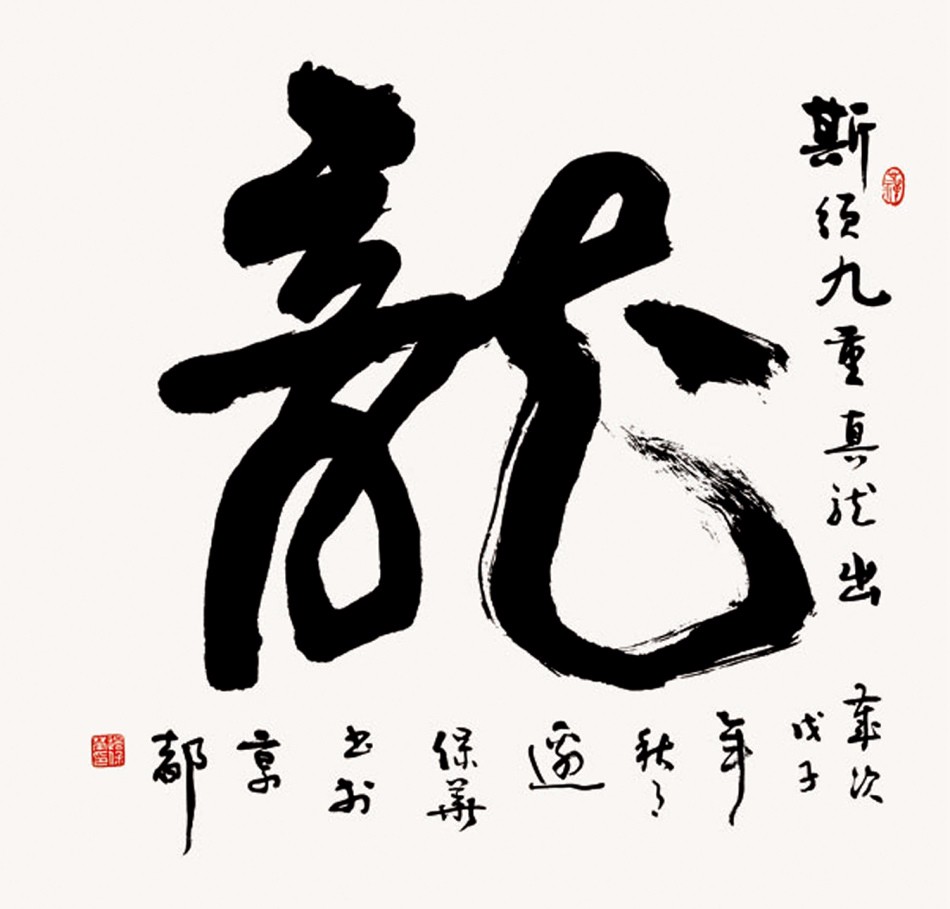 龍
斯須九重真龍出
歲次
戊子
年
秋
邊
保華
書於
京
都